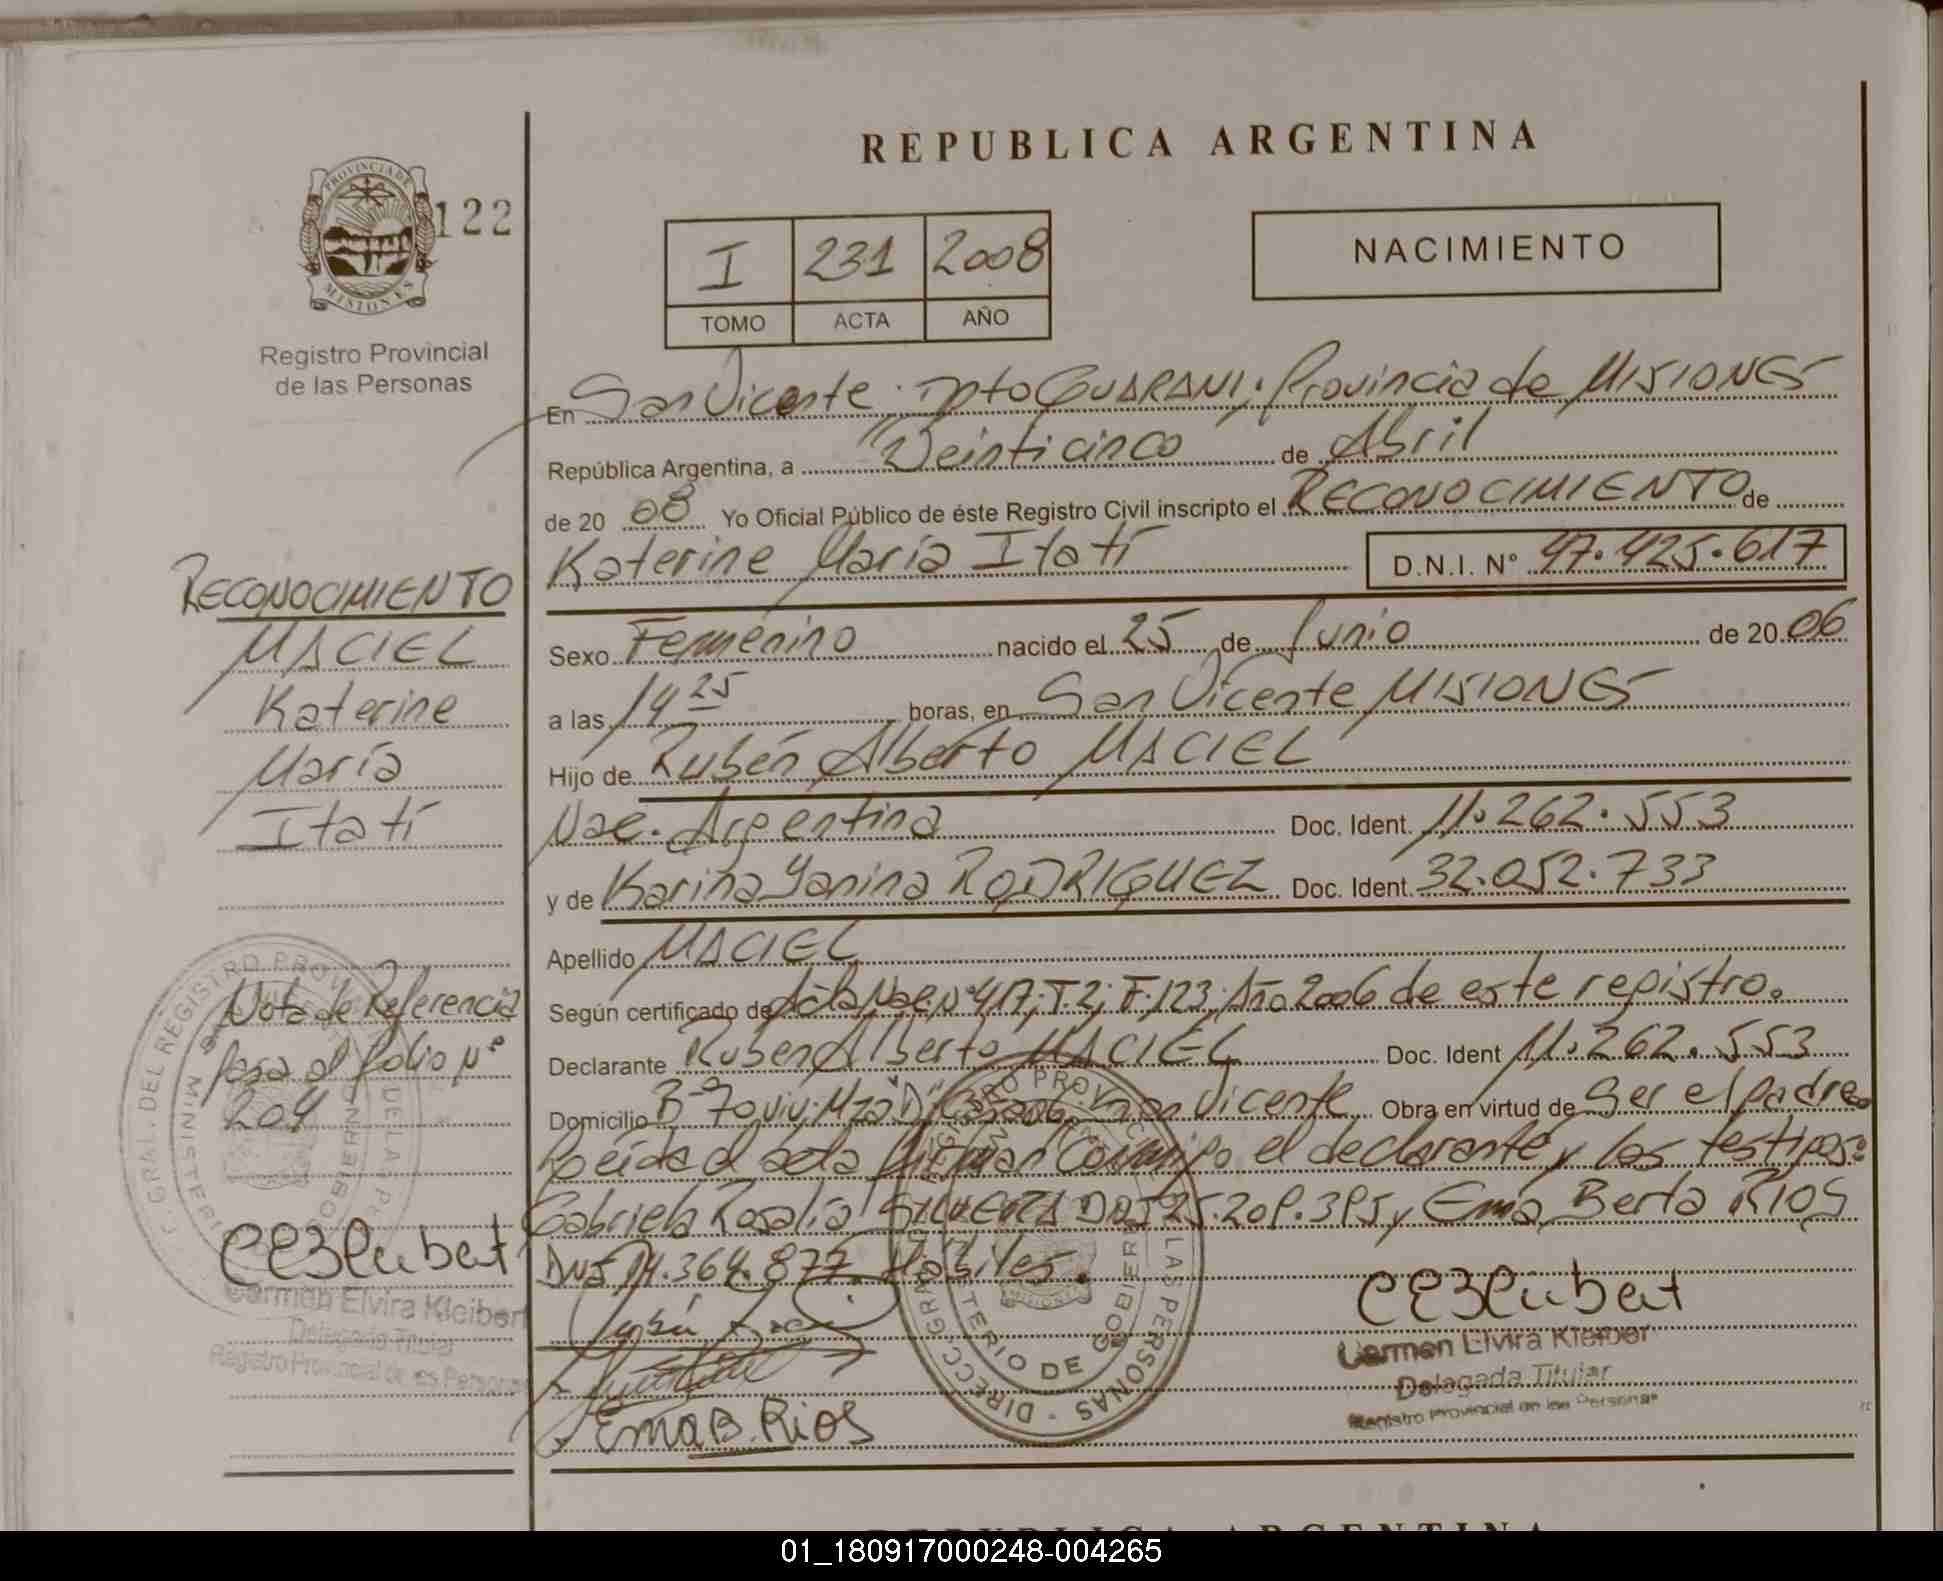 REPUBLICA ARGENTINA
PROVINCIA DE
MISIONES
122
Registro Provincial
de las Personas
I 231 2008
TOMO ACTA AÑO
NACIMIENTO
En San Vicente. Dpto GUARANI. Provincia de MISIONES
República Argentina, a Veinticinco de Abril
de 20 08 Yo Oficial Público de éste Registro Civil inscripto el RECONOCIMIENTO de
Katerine María Itatí D.N.I. N° 47.425.617
Sexo Femenino nacido el 25 de Junio de 20 06
a las 14 25 boras, en San Vicente MISIONES
Hijo de Rubén Alberto MACIEL
Nac. Argentina Doc. Ident. 11.262.553
y de Karina Yanina RODRIGUEZ Doc. Ident. 32.052.733
Apellido MACIEL
Según certificado de Acta Nac. N° 417; T. 2; F. 123; Año 2006 de este registro.
Declarante Ruben Alberto MACIEL Doc. Ident 11.262.553
Domicilio B° 70 viv. Mza "D" San Vicente Obra en virtud de Ser el padre
Leída el acta Firman Conmigo el declarante y los testigos:
Gabriela Rosalía DNI 25.209.395 y Ema Berta RIOS
DNI 14.364.877. Hábiles.
Ema B. Rios
Carmen Elvira Kleiber
Delegada Titular
Registro Provincial de las Personas
RECONOCIMIENTO
MACIEL
Katerine
María
Itatí
Nota de Referencia
Pasa al folio N°
204
Carmen Elvira Kleiber
Delegada Titular
Registro Provincial de las Personas
REPUBLICA ARGENTINA
01_180917000248-004265